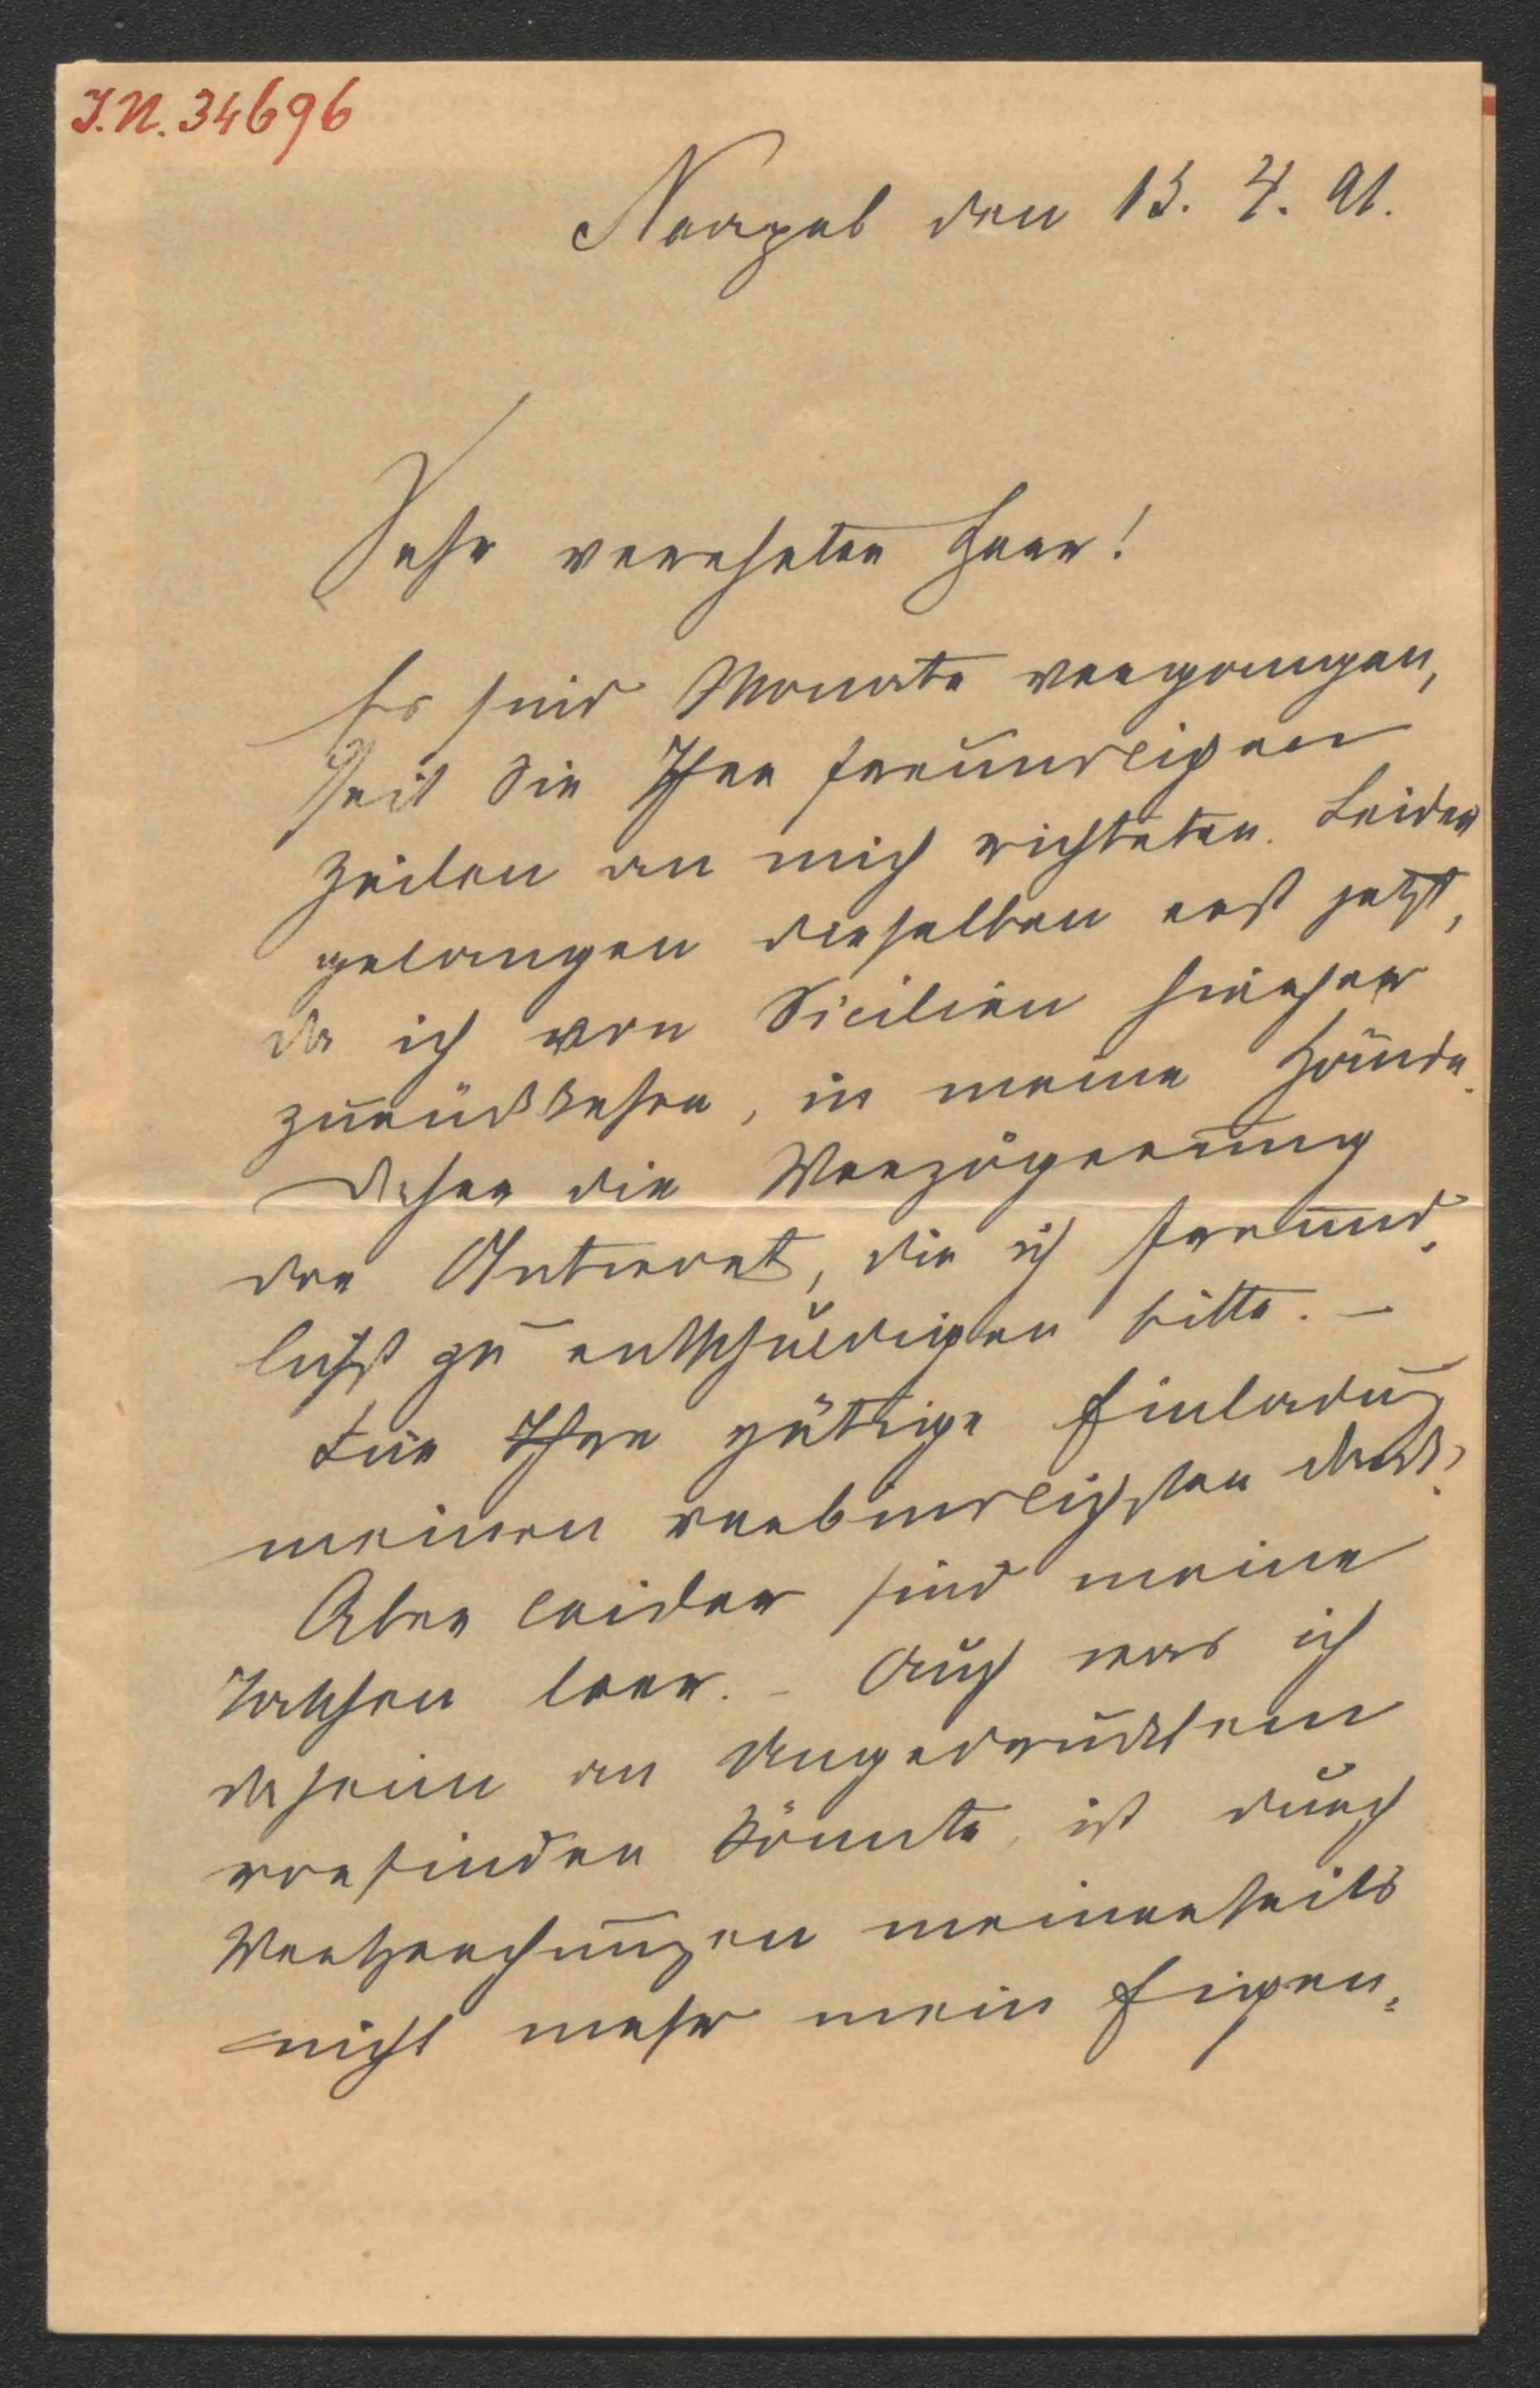 I.N. 34696
Neapel den 13. 4. 91.
Sehr verehrter Herr!
Es sind Monate vergangen,
seit Sie Ihre freundlichen
Zeilen an mich richteten. Leider
gelangen dieselben erst jetzt,
da ich von Sicilien hierher
zurückkehre, in meine Hände.
Daher die Verzögerung
der Antwort, die ich freund-
lichst zu entschuldigen bitte. –
Für Ihre gütige Einladung
meinen verbindlichsten Dank.
Aber leider sind meine
Taschen leer. – Auch was ich
daheim an Ungedrucktem
vorfinden könnte, ist durch
Versprechungen meinerseits
nicht mehr mein Eigen-